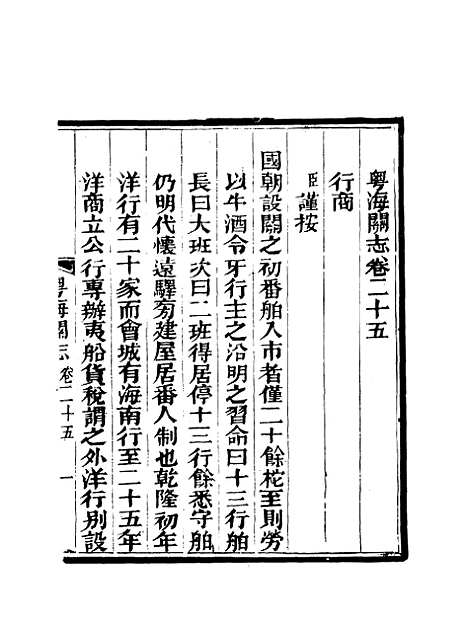 粵海關志卷二十五
行商
臣謹按
國朝設關之初番舶入市者僅二十餘柁至則勞
以牛酒令牙行主之沿明之習命曰十三行舶
長曰大班次曰二班得居停十三行餘悉守舶
仍明代懷遠驛旁建屋居番人制也乾隆初年
洋行有二十家而會城有海南行至二十五年
洋商立公行專辦夷船貨稅謂之外洋行別設
粵海關志 卷二十五 一